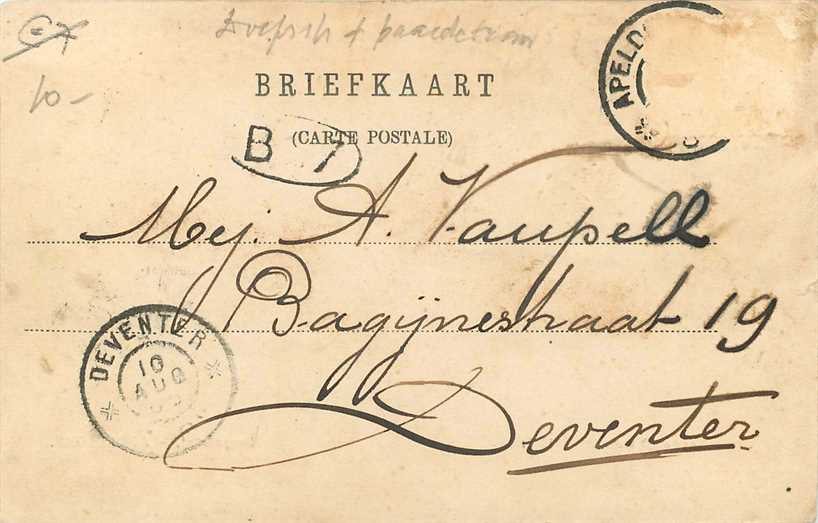 BRIEFKAART
(CARTE POSTALE)
APELD
B 7
Mej. A. Vaupell
Bagijnestraat 19
Deventer
DEVENTER
10
AUG
10-